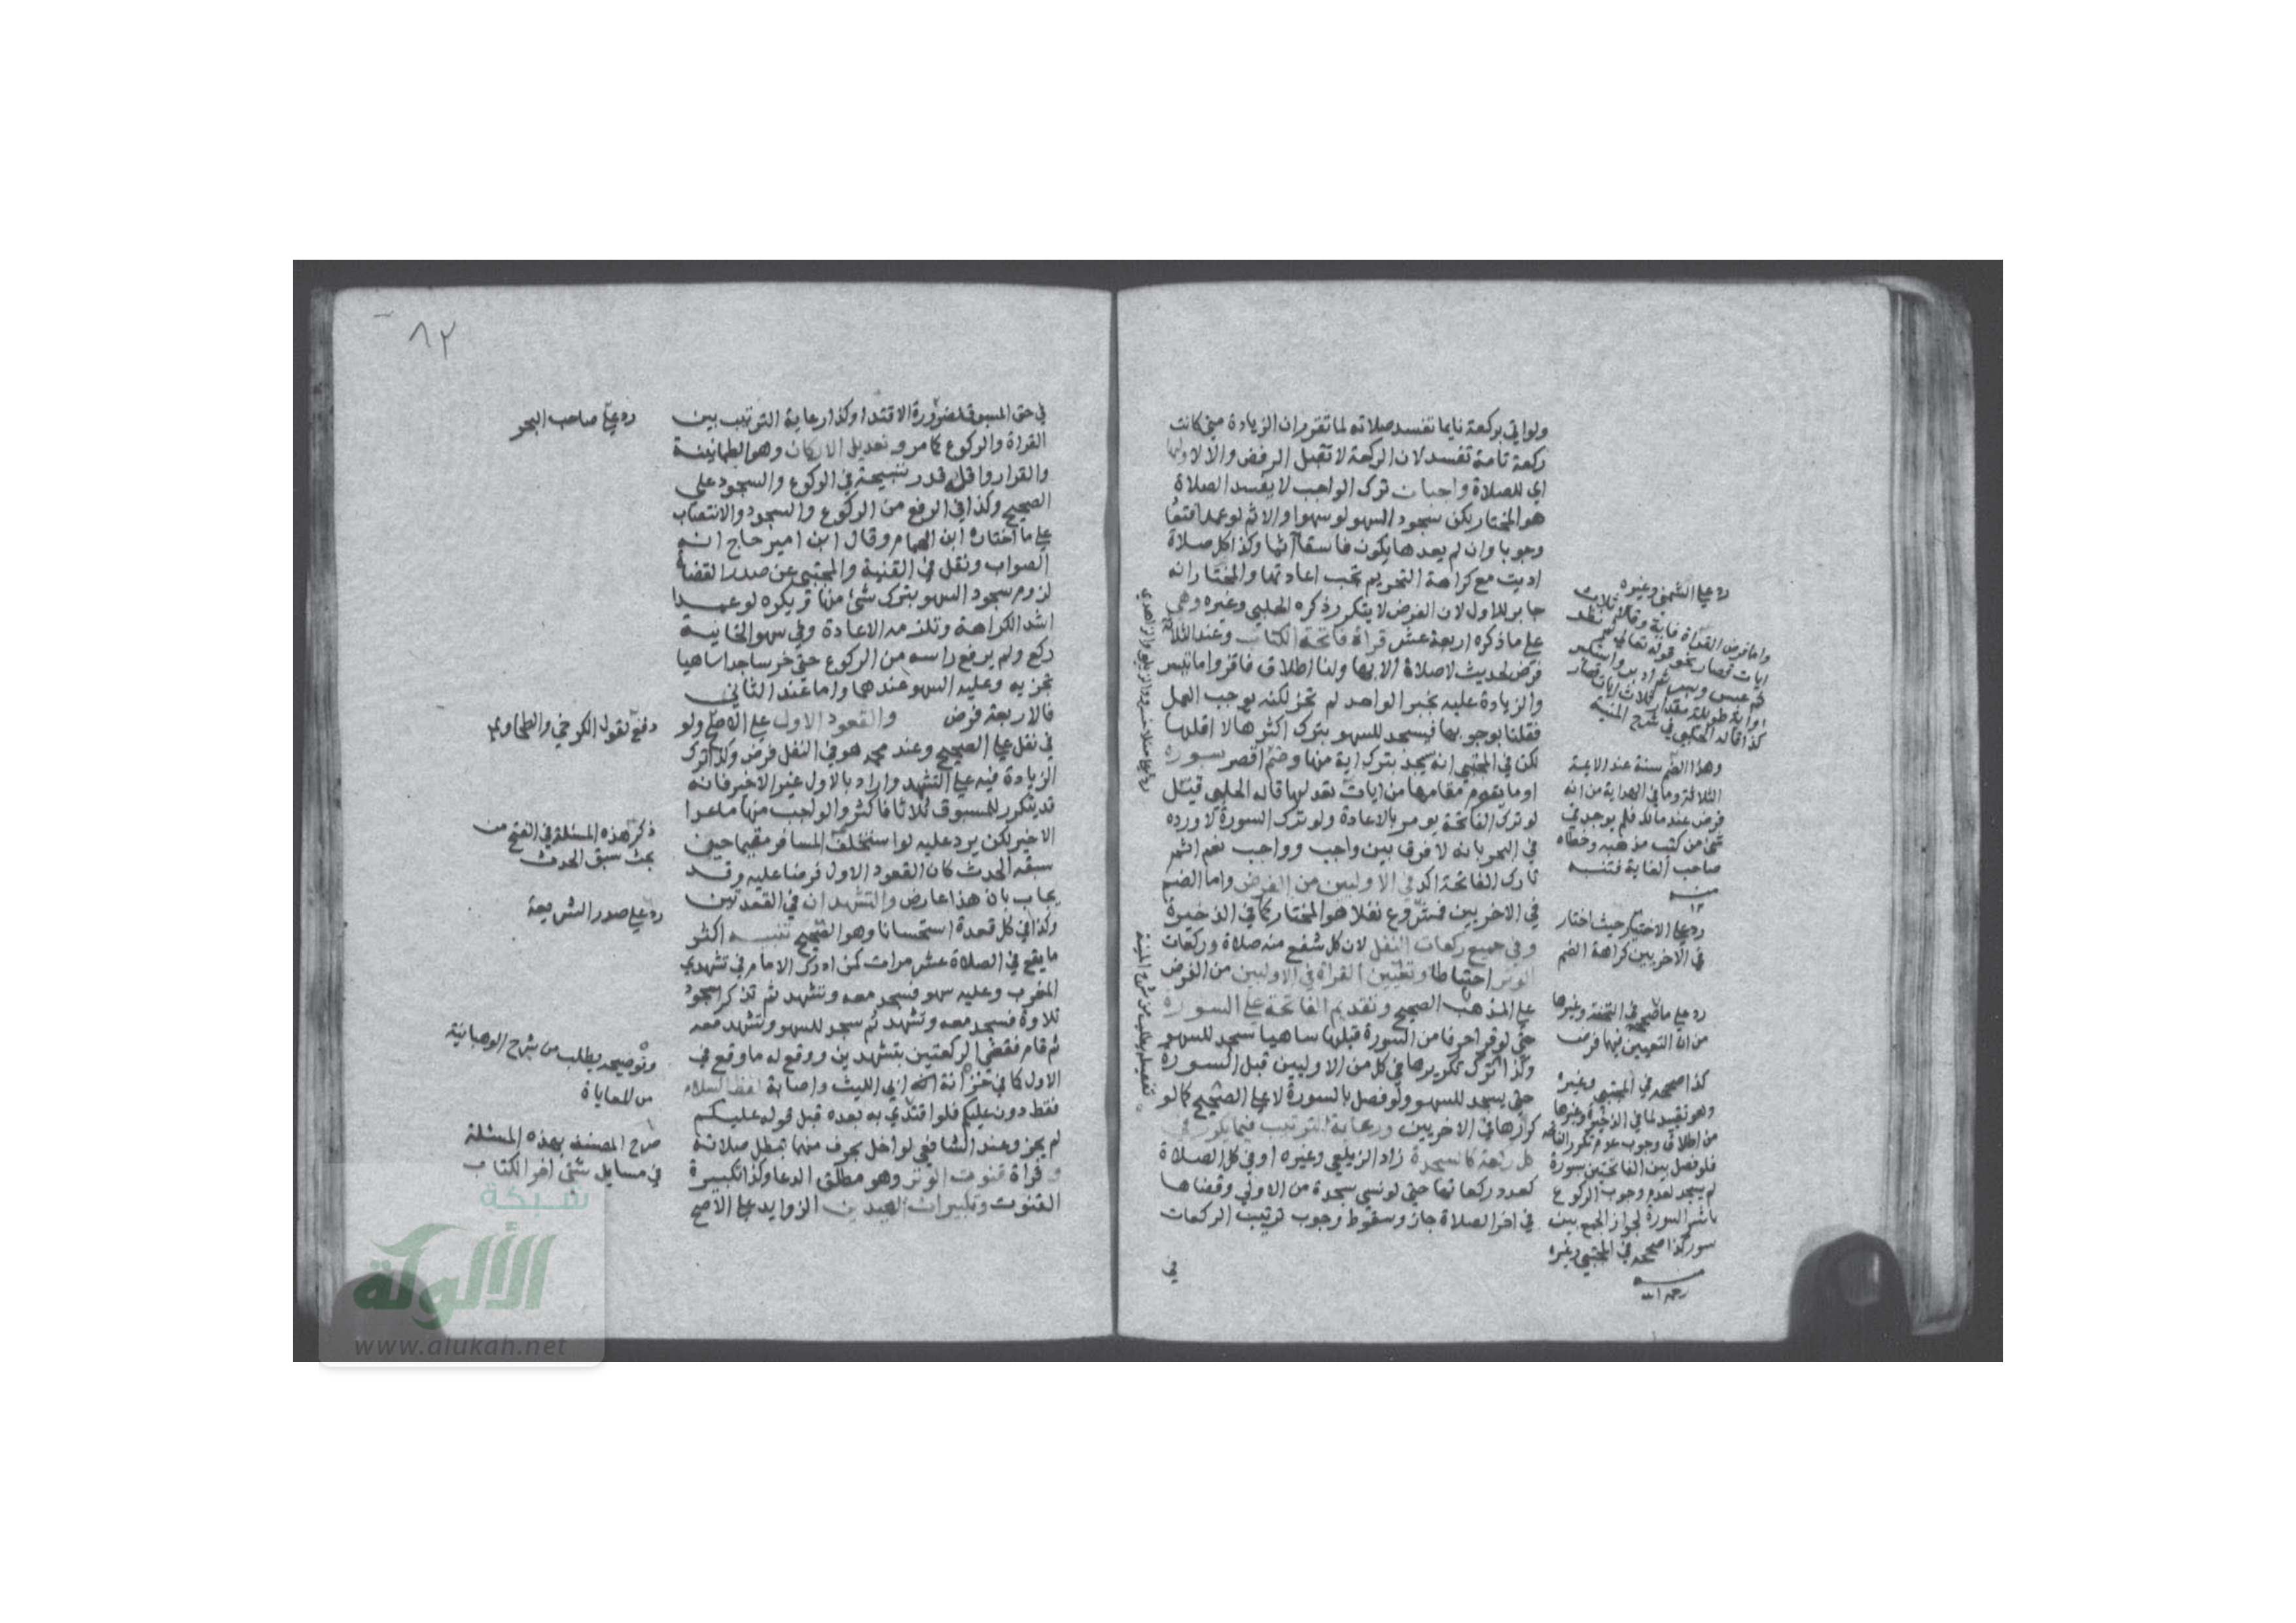 ولو اتي بركعة نايما تفسد صلاته لما تقرر ان الزيادة متي كانت
ركعة تامة تفسد لان الركعة لا تقبل الرفض والا لا ولها
اي للصلاة واجبات ترك الواجب لا يفسد الصلاة
هو المختار يكن سجود السهو لو سهوا والاثم لو عمدا فتعاد
وجوبا وان لم يعدها يكون فاسقا آثما وكذا كل صلاة
اديت مع كراهة التحريم تجب اعادتها والمختار انه
جابر للاول لان الفرض لا يتكرر ذكره الحلبي وغيره وهي
علي ما ذكره اربعة عشر قراة فاتحة الكتاب وعند الثلاثة
فرض لحديث لا صلاة الا بها ولنا اطلاق فاقروا ما تيسر
والزيادة عليه بخبر الواحد لم تجز لكنه يوجب العمل
فقلنا بوجوبها فيسجد للسهو بترك اكثرها لا اقلها
لكن في المجتبي انه يسجد بترك اية منها وضم اقصر سورة
او ما يقوم مقامها من ايات تعدلها قاله الحلبي قيل
لو ترك الفاتحة يومر بالاعادة ولو ترك السورة لا ورده
في البحر بانه لا فرق بين واجب وواجب نعم اثم
تارك الفاتحة اكد في الاوليين من الفرض واما الضم
في الاخريين فمشروع نفلا هو المختار كما في الذخيرة
وفي جميع ركعات النفل لان كل شفع منه صلاة وركعات
الوتر احتياطا وتعيين القراة في الاوليين من الفرض
علي المذهب الصحيح وتقديم الفاتحة علي السورة
حتي لو قرا حرفا من السورة قبلها ساهيا سجد للسهو
وكذا ترك تكريرها في كل من الاوليين قبل السورة
حتي يسجد للسهو ولو فصل بالسورة لا علي الصحيح كما لو
كررها في الاخريين ورعاية الترتيب فيما يكرر في
كل ركعة كالسجدة زاد الزيلعي وغيره او في كل الصلاة
كعدد ركعاتها حتي لو نسي سجدة من الاولي وقضاها
في اخر الصلاة جاز وسقوط وجوب ترتيب الركعات
في
رد علي الشمني وغيره
وهذا الضم سنة عند الايمة
الثلاثة وما في الهداية من انه
فرض عند مالك فلم يوجد في
شئ من كتب مذهبه وخطاه
صاحب الغاية فتنبه
منه
رد علي الاختيار حيث اختار
في الاخريين كراهة الضم
رد علي ما صححه في التحفة وغيرها
من ان التعيين فيها فرض
كذا صححه في المجتبي وغيره
وهو تقييد لما في الذخيرة وغيرها
من اطلاق وجوب عدم تكرر الفاتحة
فلو فصل بين الفاتحتين بسورة
لم يسجد لعدم وجوب الركوع
باثر السورة لجواز الجمع بين
سور كذا صححه في المجتبي وغيره
منه
رحمه الله
تفصيله يطلب من شرح المنية
في حق المسبوق لضرورة الاقتدا وكذا رعاية الترتيب بين
القراة والركوع كما مر وتعديل الاركان وهو الطمانينة
والقرار واقله قدر تسبيحة في الركوع والسجود علي
الصحيح وكذا في الرفع من الركوع والسجود والانتصاب
علي ما اختاره ابن الهمام وقال ابن امير حاج انه
الصواب ونقل في القنية والمجتبي عن صدر القضاة
لزوم سجود السهو بترك شئ منها ويكره لو عمدا
اشد الكراهة وتلزمه الاعادة وفي سهو الخانية
ركع ولم يرفع راسه من الركوع حتي خر ساجدا ساهيا
تجزيه وعليه السهو عندهما واما عند الثاني
فالاربعة فرض والقعود الاول علي الاصح ولو
في نفل علي الصحيح وعند محمد هو في النفل فرض وكذا ترك
الزيادة فيه علي التشهد واراد بالاول غير الاخير فانه
قد يتكرر للمسبوق ثلاثا فاكثر والواجب منها ما عدا
الاخير لكن يرد عليه لو استخلف المسافر مقيما حين
سبقه الحدث كان القعود الاول فرضا عليه وقد
يجاب بان هذا عارض والتشهدان في القعدتين
وكذا في كل قعدة استحسانا وهو الصحيح تنبيه اكثر
ما يقع في الصلاة عشر مرات كمن ادرك الامام في تشهدي
المغرب وعليه سهو فسجد معه وتشهد ثم تذكر سجود
تلاوة فسجد معه وتشهد ثم سجد للسهو وتشهد معه
ثم قام فقضي الركعتين بتشهدين ووقع له ما وقع في
الاول كما في خزانة الفقه ابي الليث واصابة لفظ السلام
فقط دون عليكم فلو اقتدي به بعده قبل قوله عليكم
لم يجز وعند الشافعي لو اخل بحرف منها تبطل صلاته
وقراة قنوت الوتر وهو مطلق الدعا وكذا تكبيرة
القنوت وتكبيرات العيدين الزوايد علي الاصح
٨٢
رد علي صاحب البحر
دفع لقول الكرخي والطحاوي
ذكر هذه المسئلة في الفتح من
بحث سبق الحدث
رد علي صدر الشريعة
وتوضيحه يطلب من شرح الوهبانية
من المعاياة
صرح المصنف بهذه المسئلة
في مسايل شتي اخر الكتاب
شبكة
الألوكة
www.alukah.net